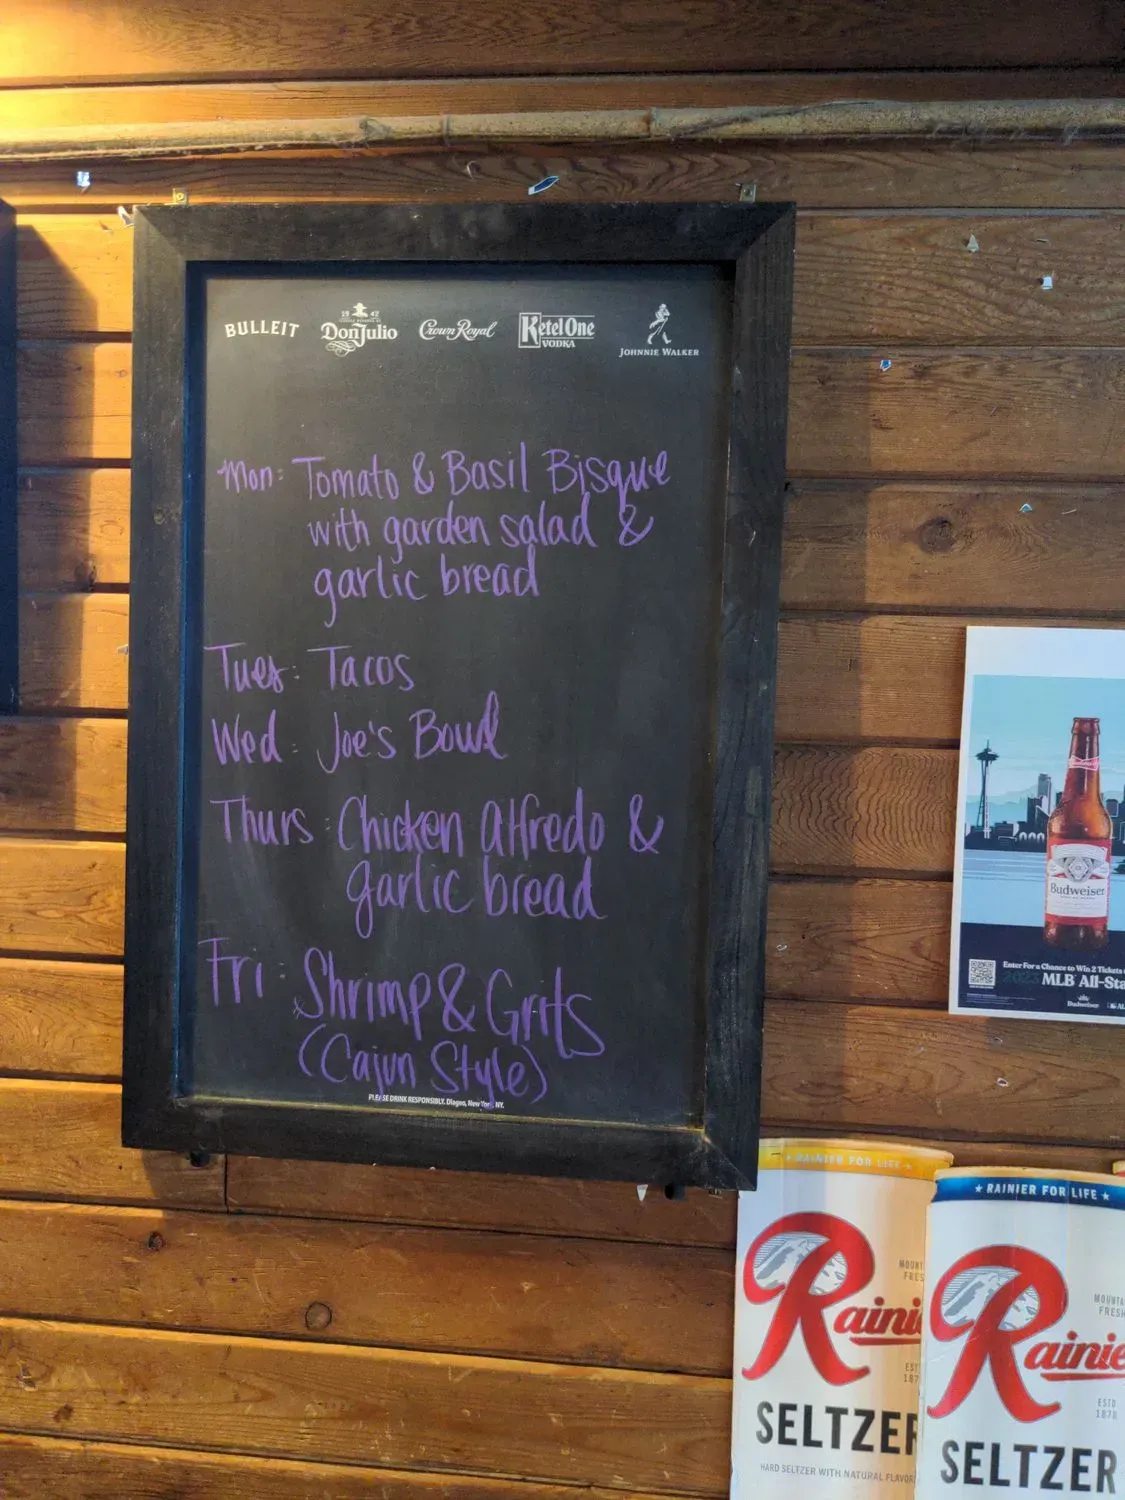 BULLEIT
19 42
Don Julio
Crown Royal
Ketel One
VODKA
JOHNNIE WALKER
Mon: Tomato & Basil Bisque
with garden salad &
garlic bread
Tues: Tacos
Wed: Joe's Bowl
Thurs: Chicken Alfredo &
garlic bread
Fri: Shrimp & Grits
(Cajun Style)
PLEASE DRINK RESPONSIBLY. Diageo, New York, NY.
Budweiser
Enter For a Chance to Win 2 Tickets
MLB All-Sta
Budweiser
RAINIER FOR LIFE
Raini
MOUN
FRES
EST
187
SELTZER
HARD SELTZER WITH NATURAL FLAVOR
★ RAINIER FOR LIFE ★
Rainie
MOUNTA
FRESH
ESTD
1878
SELTZER